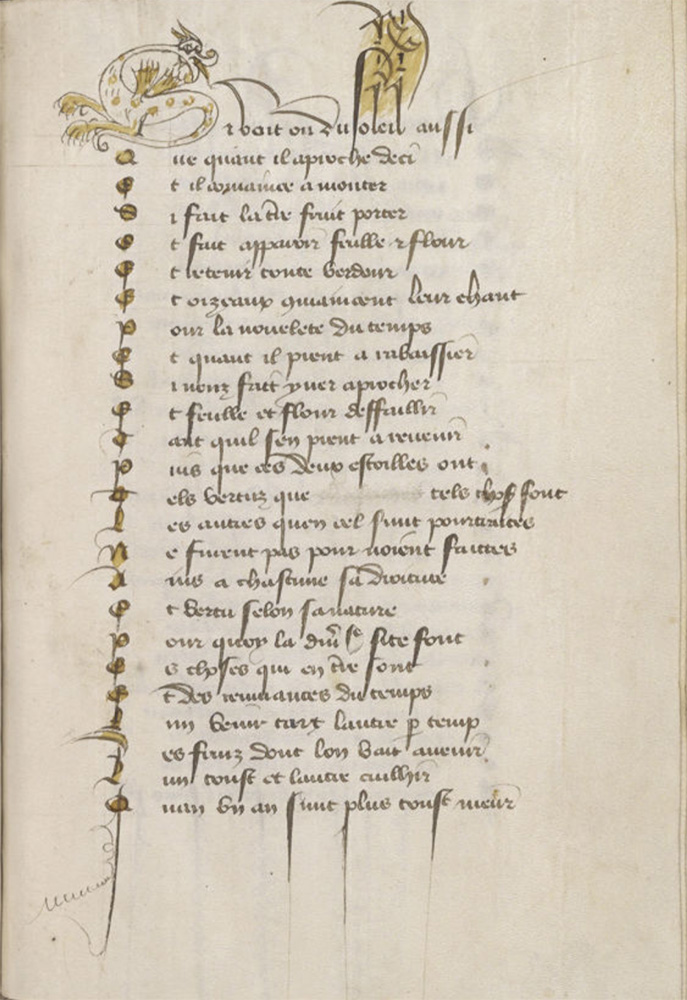 r voit on du soleil aussi
Que quant il aproche deci
Et il commance a monter
Si fait la t̄re fruit porter
Et fait apparoir feulle ⁊ flour
Et retenir toute verdour
Et oizeaux ꝯmancent leur chant
Pour la novelete du temps
Et quant il prent a rabaissier
Si nenz fait yver aprocher
Et feulle et flour deffaillir
Tant quil sen prent a revenir
Puis que ces deux estoilles ont
Tels vertuz que tels chos̄ font
Les autres quen cel sunt pourtraites
Ne furent pas pour noient faittes
Ains a chascune sa droiture
Et vertu selon sa nature
Pour quoy la font
Es choses qui en t̄re sont
Et des muances du temps
Lun venir tart lautre ꝑ temp
Les fruiz dont lon vait avenir
Lun toust et lautre cuillir
Quan un an sunt plus toust meur